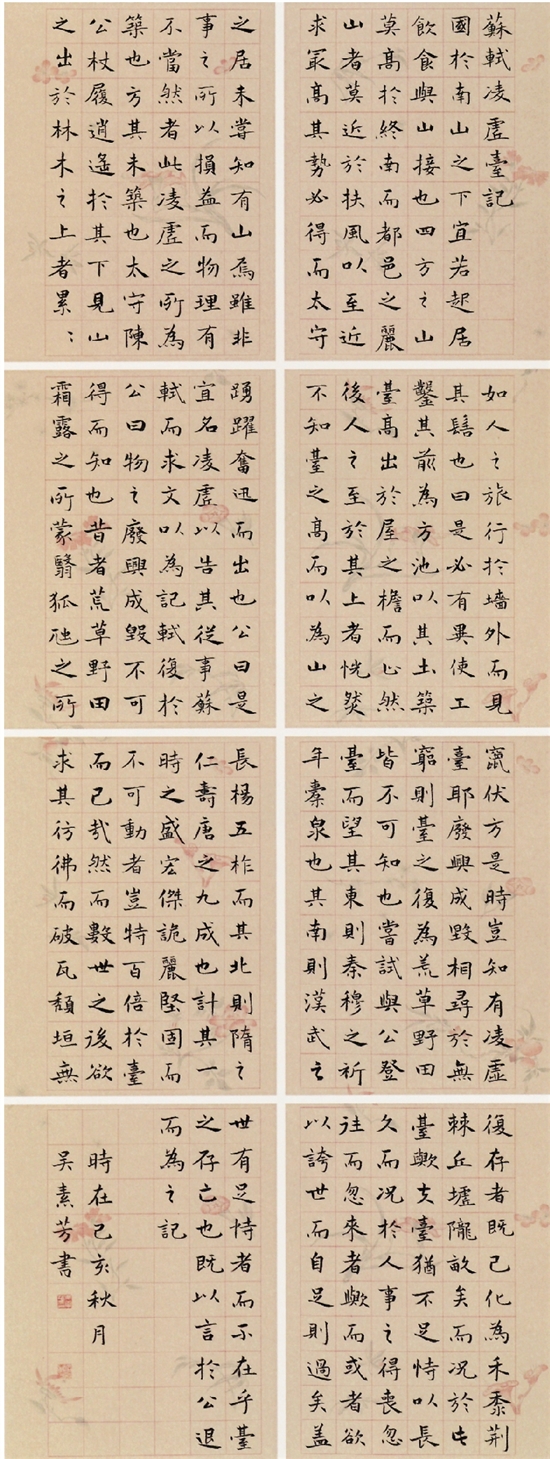 蘇軾凌虛臺記
國於南山之下宜若起居
飲食與山接也四方之山
莫高於終南而都邑之麗
山者莫近於扶風以至近
求最高其勢必得而太守
之居未嘗知有山焉雖非
事之所以損益而物理有
不當然者此凌虛之所為
築也方其未築也太守陳
公杖履逍遙於其下見山
之出於林木之上者累〻
如人之旅行於墻外而見
其髻也曰是必有異使工
鑿其前為方池以其土築
臺高出於屋之檐而止然
後人之至於其上者恍然
不知臺之高而以為山之
踴躍奮迅而出也公曰是
宜名凌虛以告其從事蘇
軾而求文以為記軾復於
公曰物之廢興成毀不可
得而知也昔者荒草野田
霜露之所蒙翳狐虺之所
竄伏方是時豈知有凌虛
臺耶廢興成毀相尋於無
窮則臺之復為荒草野田
皆不可知也嘗試與公登
臺而望其東則秦穆之祈
年橐泉也其南則漢武之
長楊五柞而其北則隋之
仁壽唐之九成也計其一
時之盛宏傑詭麗堅固而
不可動者豈特百倍於臺
而已哉然而數世之後欲
求其彷彿而破瓦頹垣無
復存者既已化為禾黍荊
棘丘墟隴畝矣而況於此
臺歟夫臺猶不足恃以長
久而況於人事之得喪忽
往而忽來者歟而或者欲
以誇世而自足則過矣蓋
世有足恃者而不在乎臺
之存亡也既以言於公退
而為之記
時在己亥秋月
吳素芳書